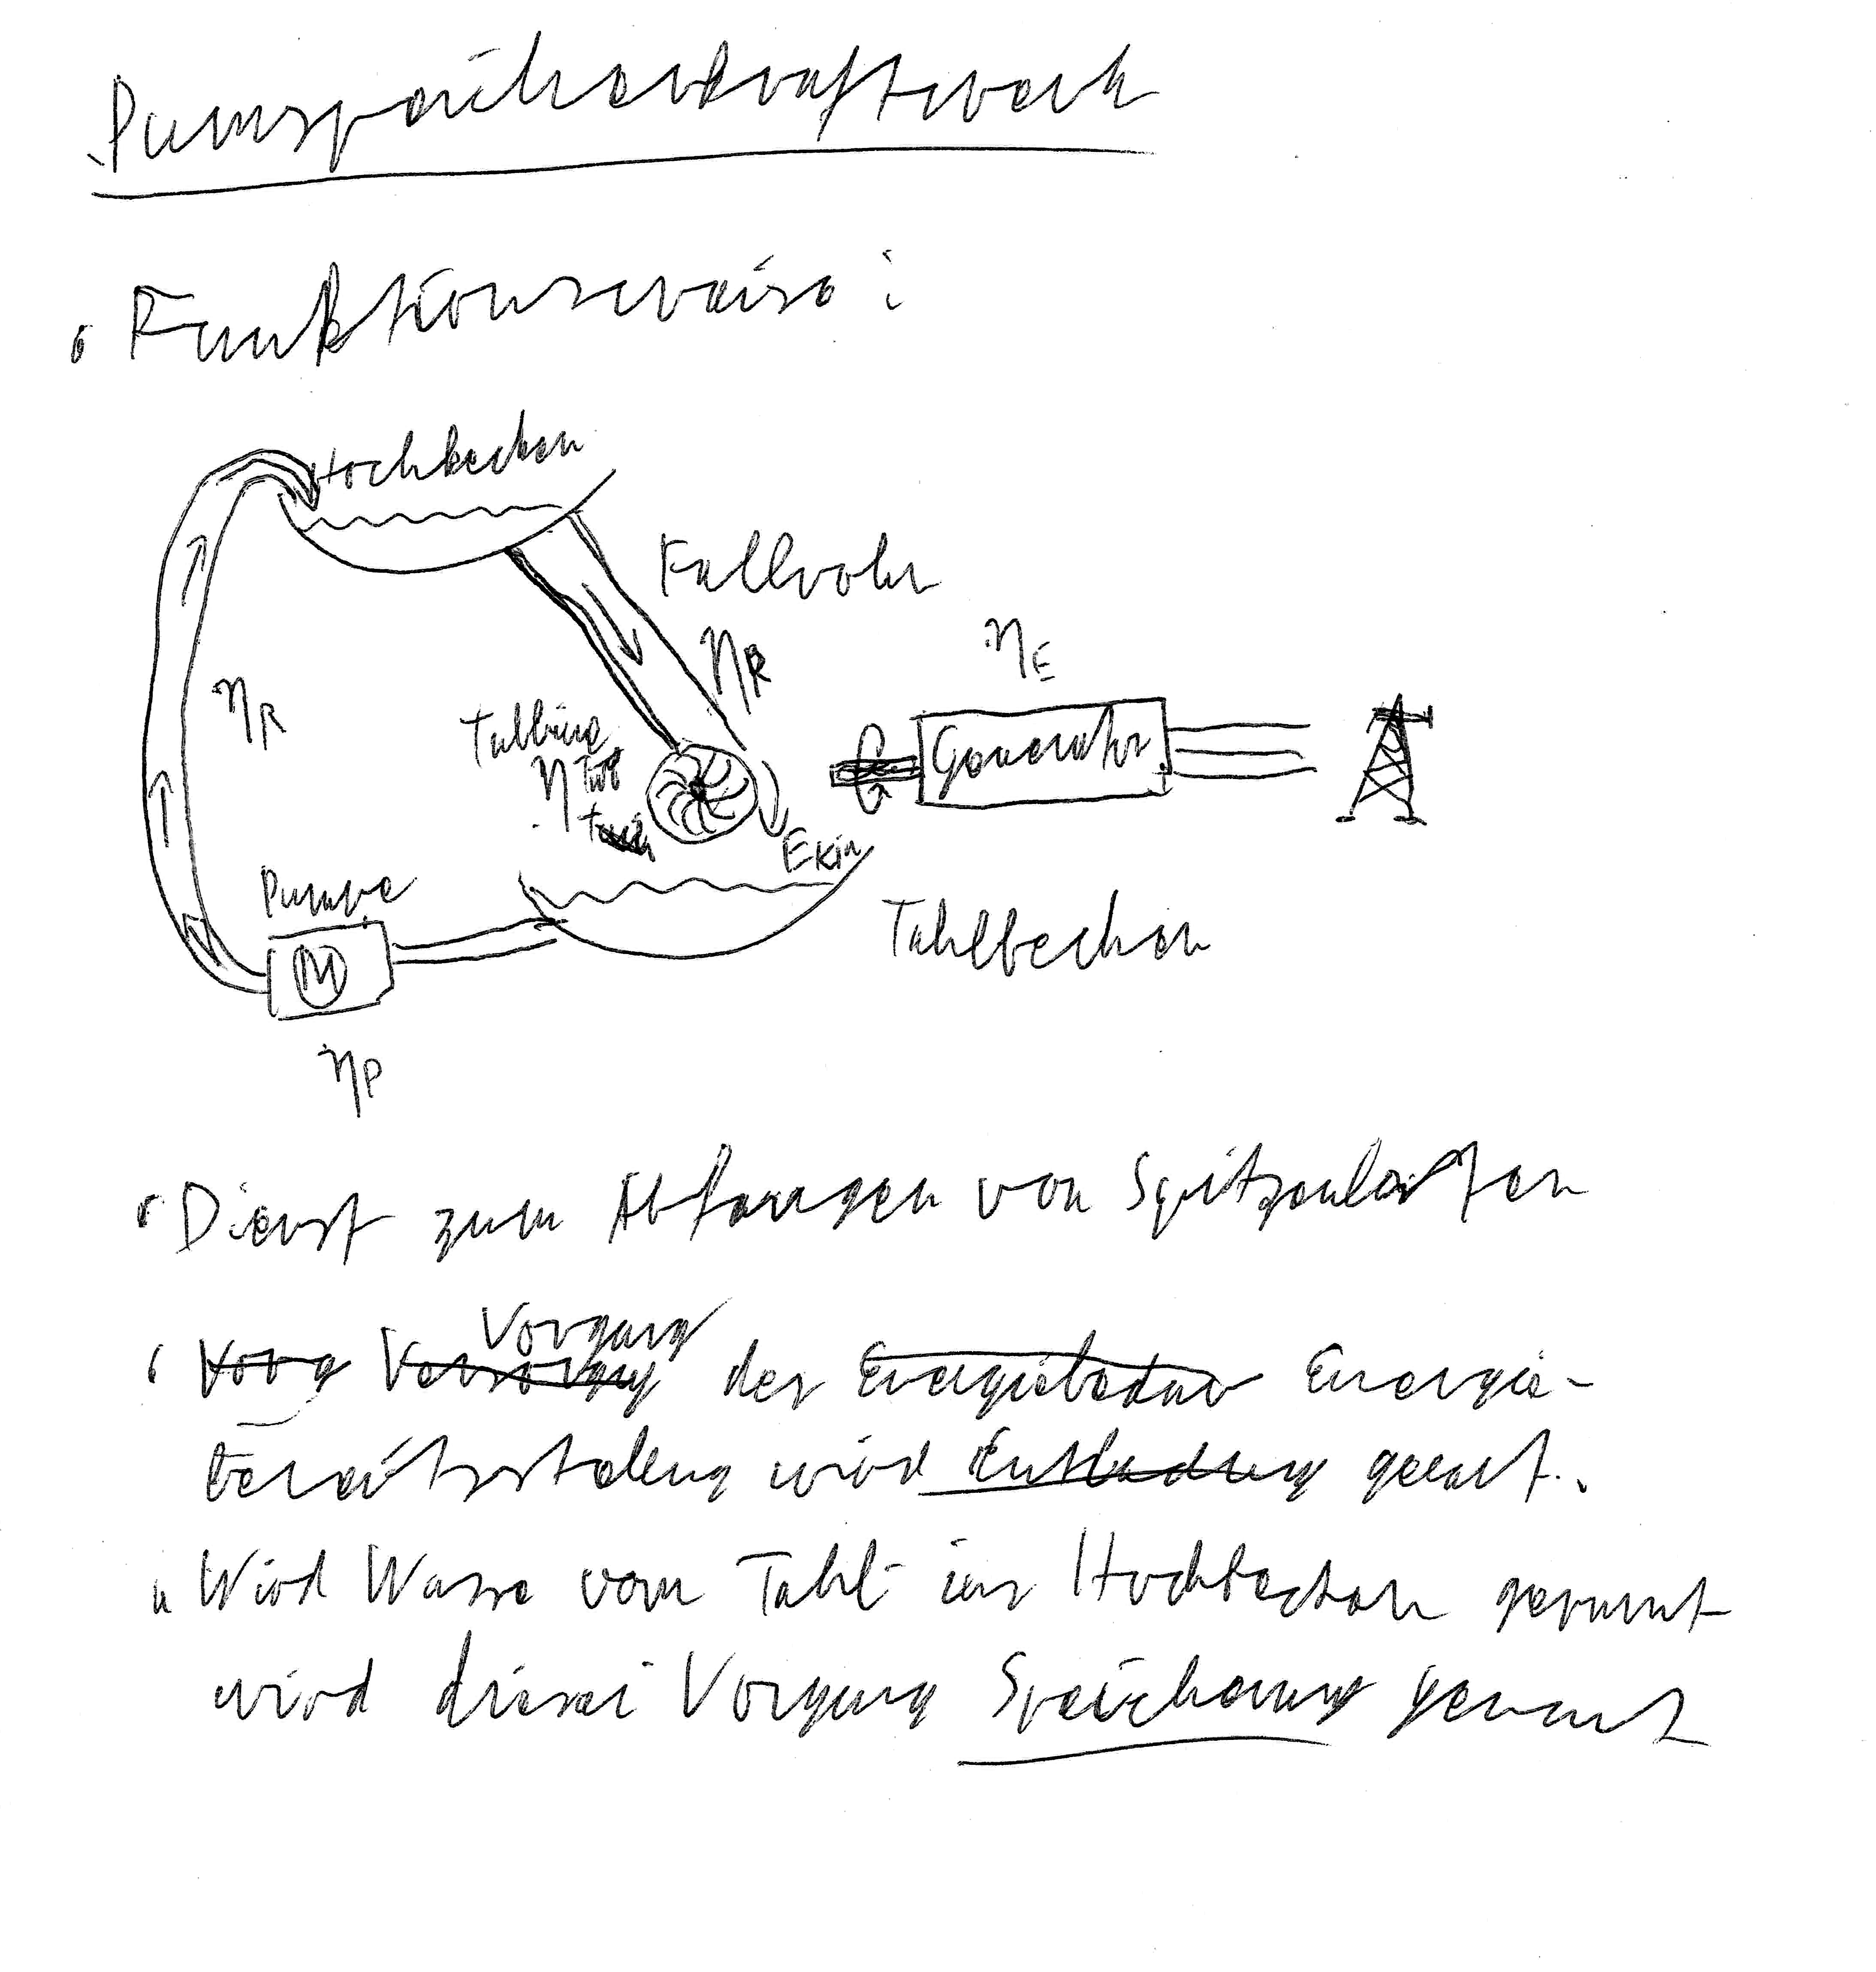 Pumspeicherkraftwerk
• Funktionsweise:
Hochbecken
Fallrohr
ηR
ηE
ηR
Tulbine
η Tub
Generator
Ekin
Pumpe
M
Tahlbecken
ηP
• Dienst zum Abfangen von Spitzenlasten
Vorgang
• Vorg Versorgung der Energiebedar Energie-
bereitsstellung wird Entladung genant.
• Wird Wasse vom Tahl- ins Hochbecken gepumt
wird dieser Vorgang Speicherung genant